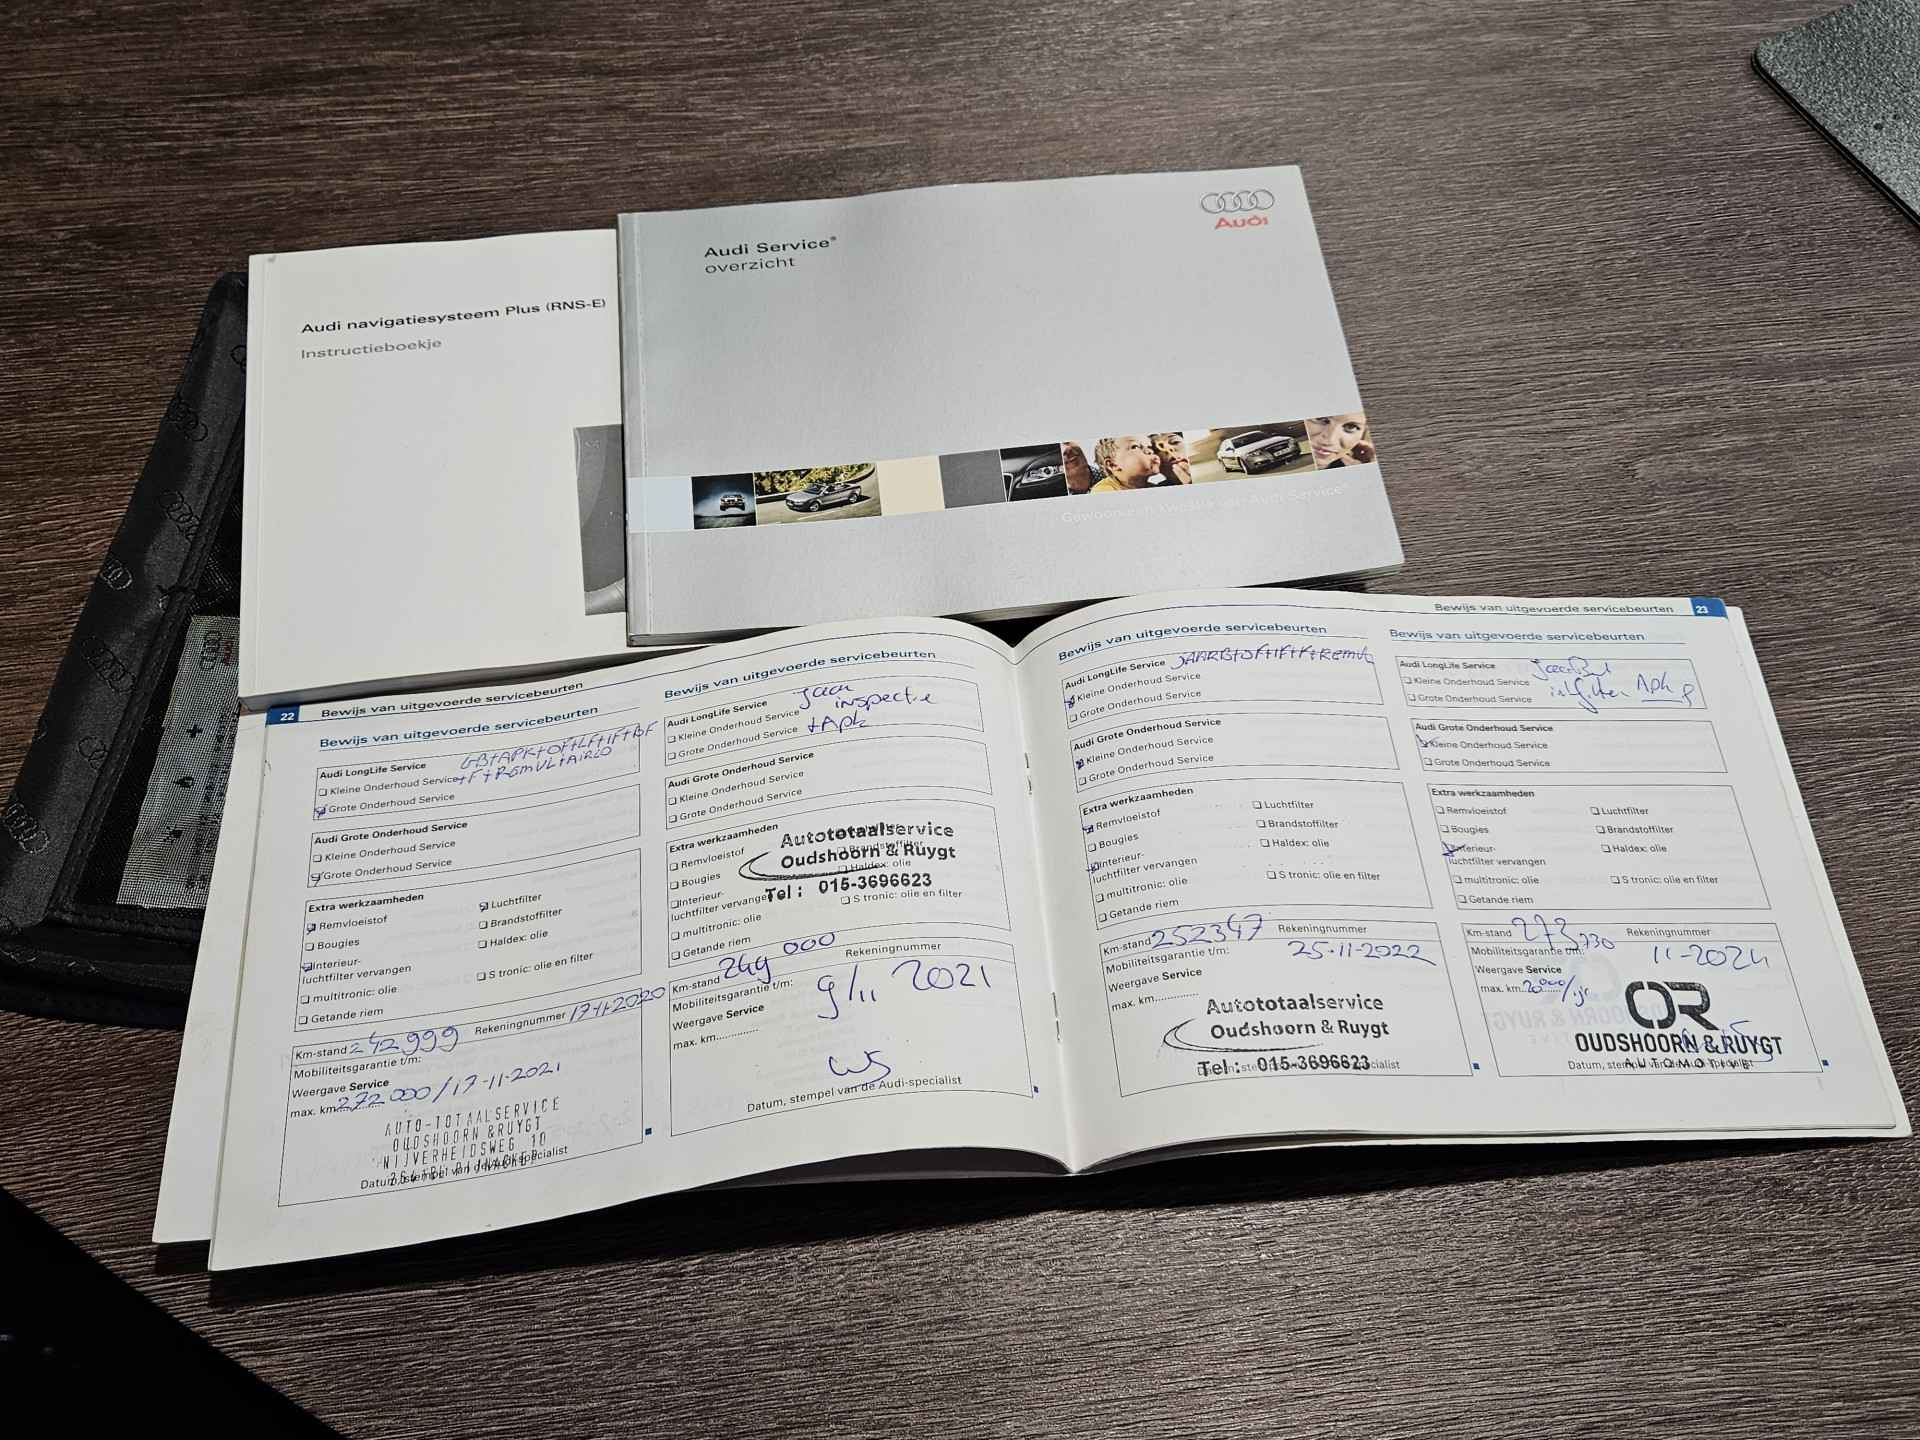 Audi navigatiesysteem Plus (RNS-E)
Instructieboekje
Audi
Audi Service®
overzicht
Gewoon een kwestie van Audi Service®
22 Bewijs van uitgevoerde servicebeurten
Bewijs van uitgevoerde servicebeurten
Audi LongLife Service GB+APK+OF+LF+IF+BF
❏ Kleine Onderhoud Service +F+REMVL+AIRCO
❏ Grote Onderhoud Service
Audi Grote Onderhoud Service
❏ Kleine Onderhoud Service
❏ Grote Onderhoud Service
Extra werkzaamheden
❏ Remvloeistof ❏ Luchtfilter
❏ Bougies ❏ Brandstoffilter
❏ Interieur- ❏ Haldex: olie
luchtfilter vervangen
❏ multitronic: olie ❏ S tronic: olie en filter
❏ Getande riem
Km-stand 242999 Rekeningnummer 17-11-2020
Mobiliteitsgarantie t/m:
Weergave Service
max. km 272000/17-11-2021
AUTO-TOTAALSERVICE
OUDSHOORN & RUYGT
NIJVERHEIDSWEG 10
PIJNACKER
Datum, stempel van de Audi-specialist
Bewijs van uitgevoerde servicebeurten
Audi LongLife Service Jaar
❏ Kleine Onderhoud Service inspectie
❏ Grote Onderhoud Service + Apk
Audi Grote Onderhoud Service
❏ Kleine Onderhoud Service
❏ Grote Onderhoud Service
Extra werkzaamheden
❏ Remvloeistof ❏ Luchtfilter
❏ Bougies ❏ Brandstoffilter
❏ Interieur- ❏ Haldex: olie
luchtfilter vervangen
❏ multitronic: olie ❏ S tronic: olie en filter
❏ Getande riem
Autototaalservice
Oudshoorn & Ruygt
Tel : 015-3696623
Km-stand 249 000 Rekeningnummer
Mobiliteitsgarantie t/m:
Weergave Service 9/11 2021
max. km............
WS
Datum, stempel van de Audi-specialist
Bewijs van uitgevoerde servicebeurten 23
Bewijs van uitgevoerde servicebeurten
Audi LongLife Service JAARB+OF+IF+F+Remvl
❏ Kleine Onderhoud Service
❏ Grote Onderhoud Service
Audi Grote Onderhoud Service
❏ Kleine Onderhoud Service
❏ Grote Onderhoud Service
Extra werkzaamheden
❏ Remvloeistof ❏ Luchtfilter
❏ Bougies ❏ Brandstoffilter
❏ Interieur- ❏ Haldex: olie
luchtfilter vervangen
❏ multitronic: olie ❏ S tronic: olie en filter
❏ Getande riem
Km-stand 252347 Rekeningnummer
Mobiliteitsgarantie t/m: 25-11-2022
Weergave Service
max. km............
Autototaalservice
Oudshoorn & Ruygt
Tel : 015-3696623
Bewijs van uitgevoerde servicebeurten
Audi LongLife Service
❏ Kleine Onderhoud Service
❏ Grote Onderhoud Service Apk
Audi Grote Onderhoud Service
❏ Kleine Onderhoud Service
❏ Grote Onderhoud Service
Extra werkzaamheden
❏ Remvloeistof ❏ Luchtfilter
❏ Bougies ❏ Brandstoffilter
❏ Interieur- ❏ Haldex: olie
luchtfilter vervangen
❏ multitronic: olie ❏ S tronic: olie en filter
❏ Getande riem
Km-stand 273730 Rekeningnummer
Mobiliteitsgarantie t/m: 11-2024
Weergave Service
max. km 20000/jr
OR
OUDSHOORN & RUYGT
AUTOMOTIVE
Datum, stempel van de Audi-specialist